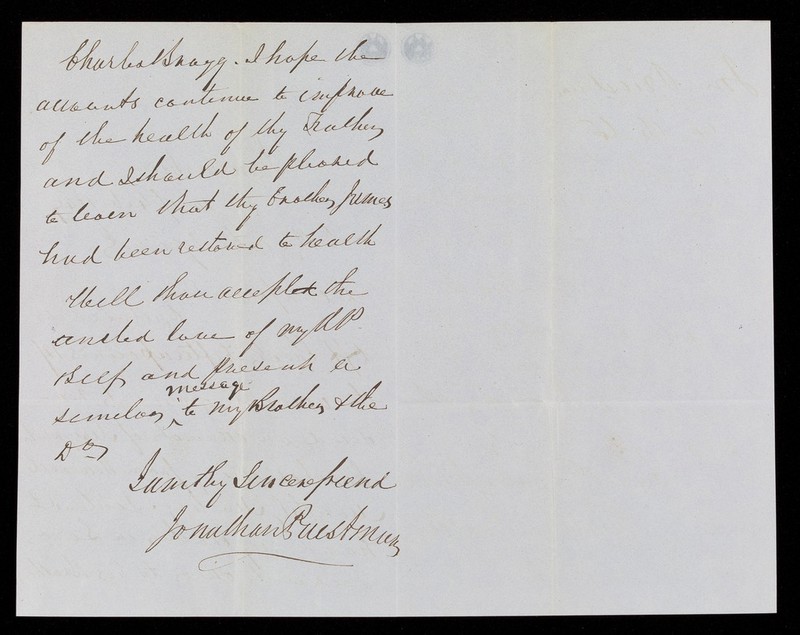 Charles Bragg. I hope the
accounts continue to improve
of the health of thy Father
and I should be pleased
to learn that thy Brother James
had been restored to health
Will thou accept the
united love of my
Self and present a
similar message to my Brother & the
Dr
I am thy Sincere friend
Jonathan Priestman